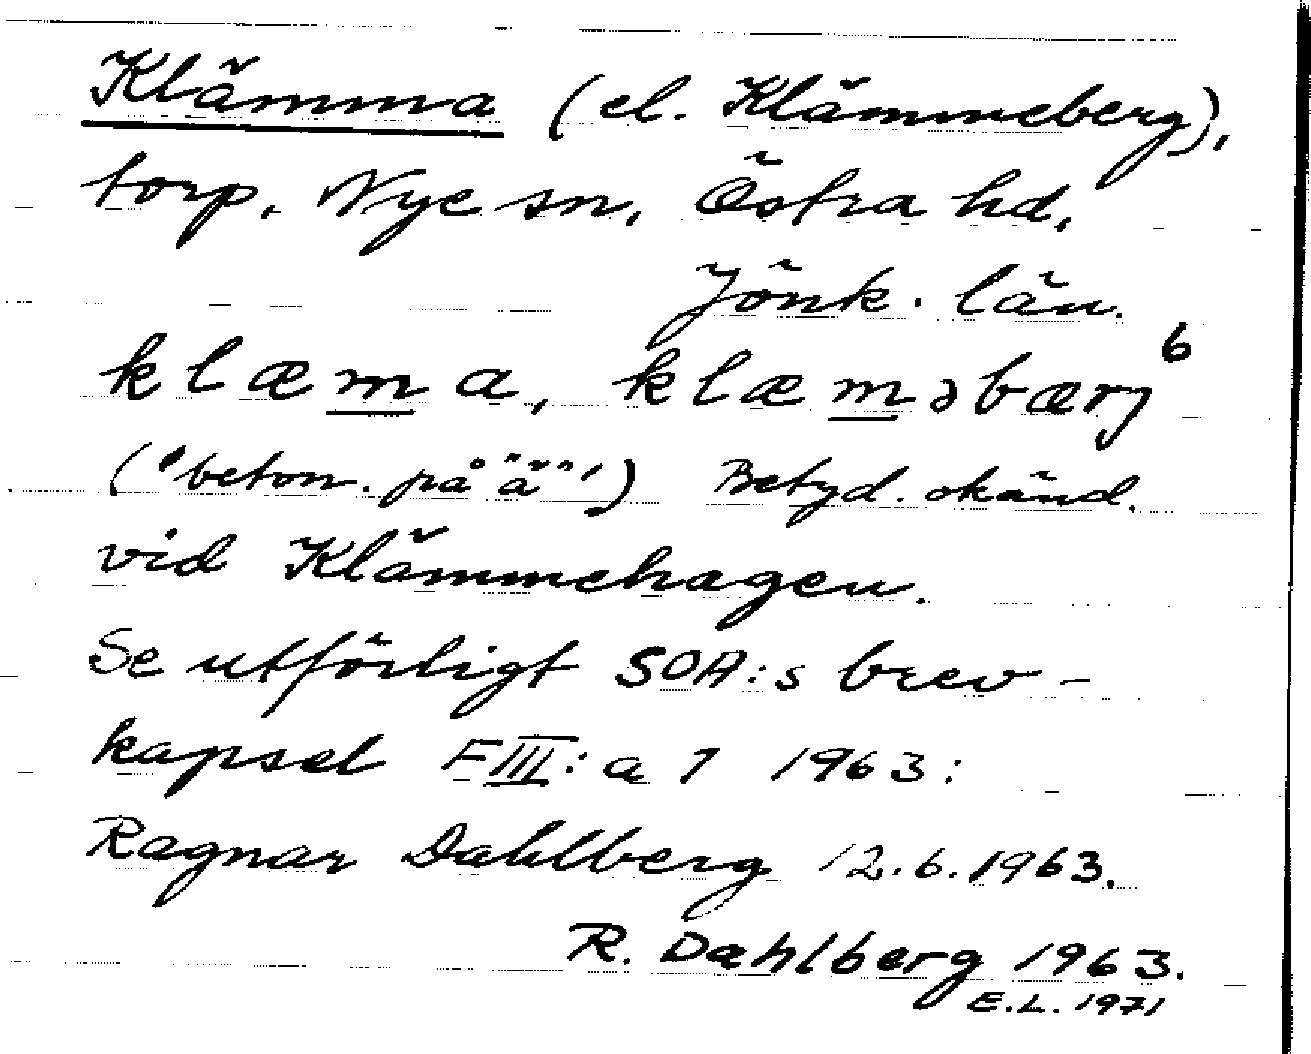 Klämma (el. Klämmeberg),
torp. Nye sn, Östra hd,
Jönk. län.
klæma, klæməbærj⁶
("beton. på "ä"") Betyd. okänd.
vid Klämmehagen.
Se utförligt SOA:s brev-
kapsel FIII:a 1 1963:
Ragnar Dahlberg 12.6.1963.
R. Dahlberg 1963.
E.L. 1971